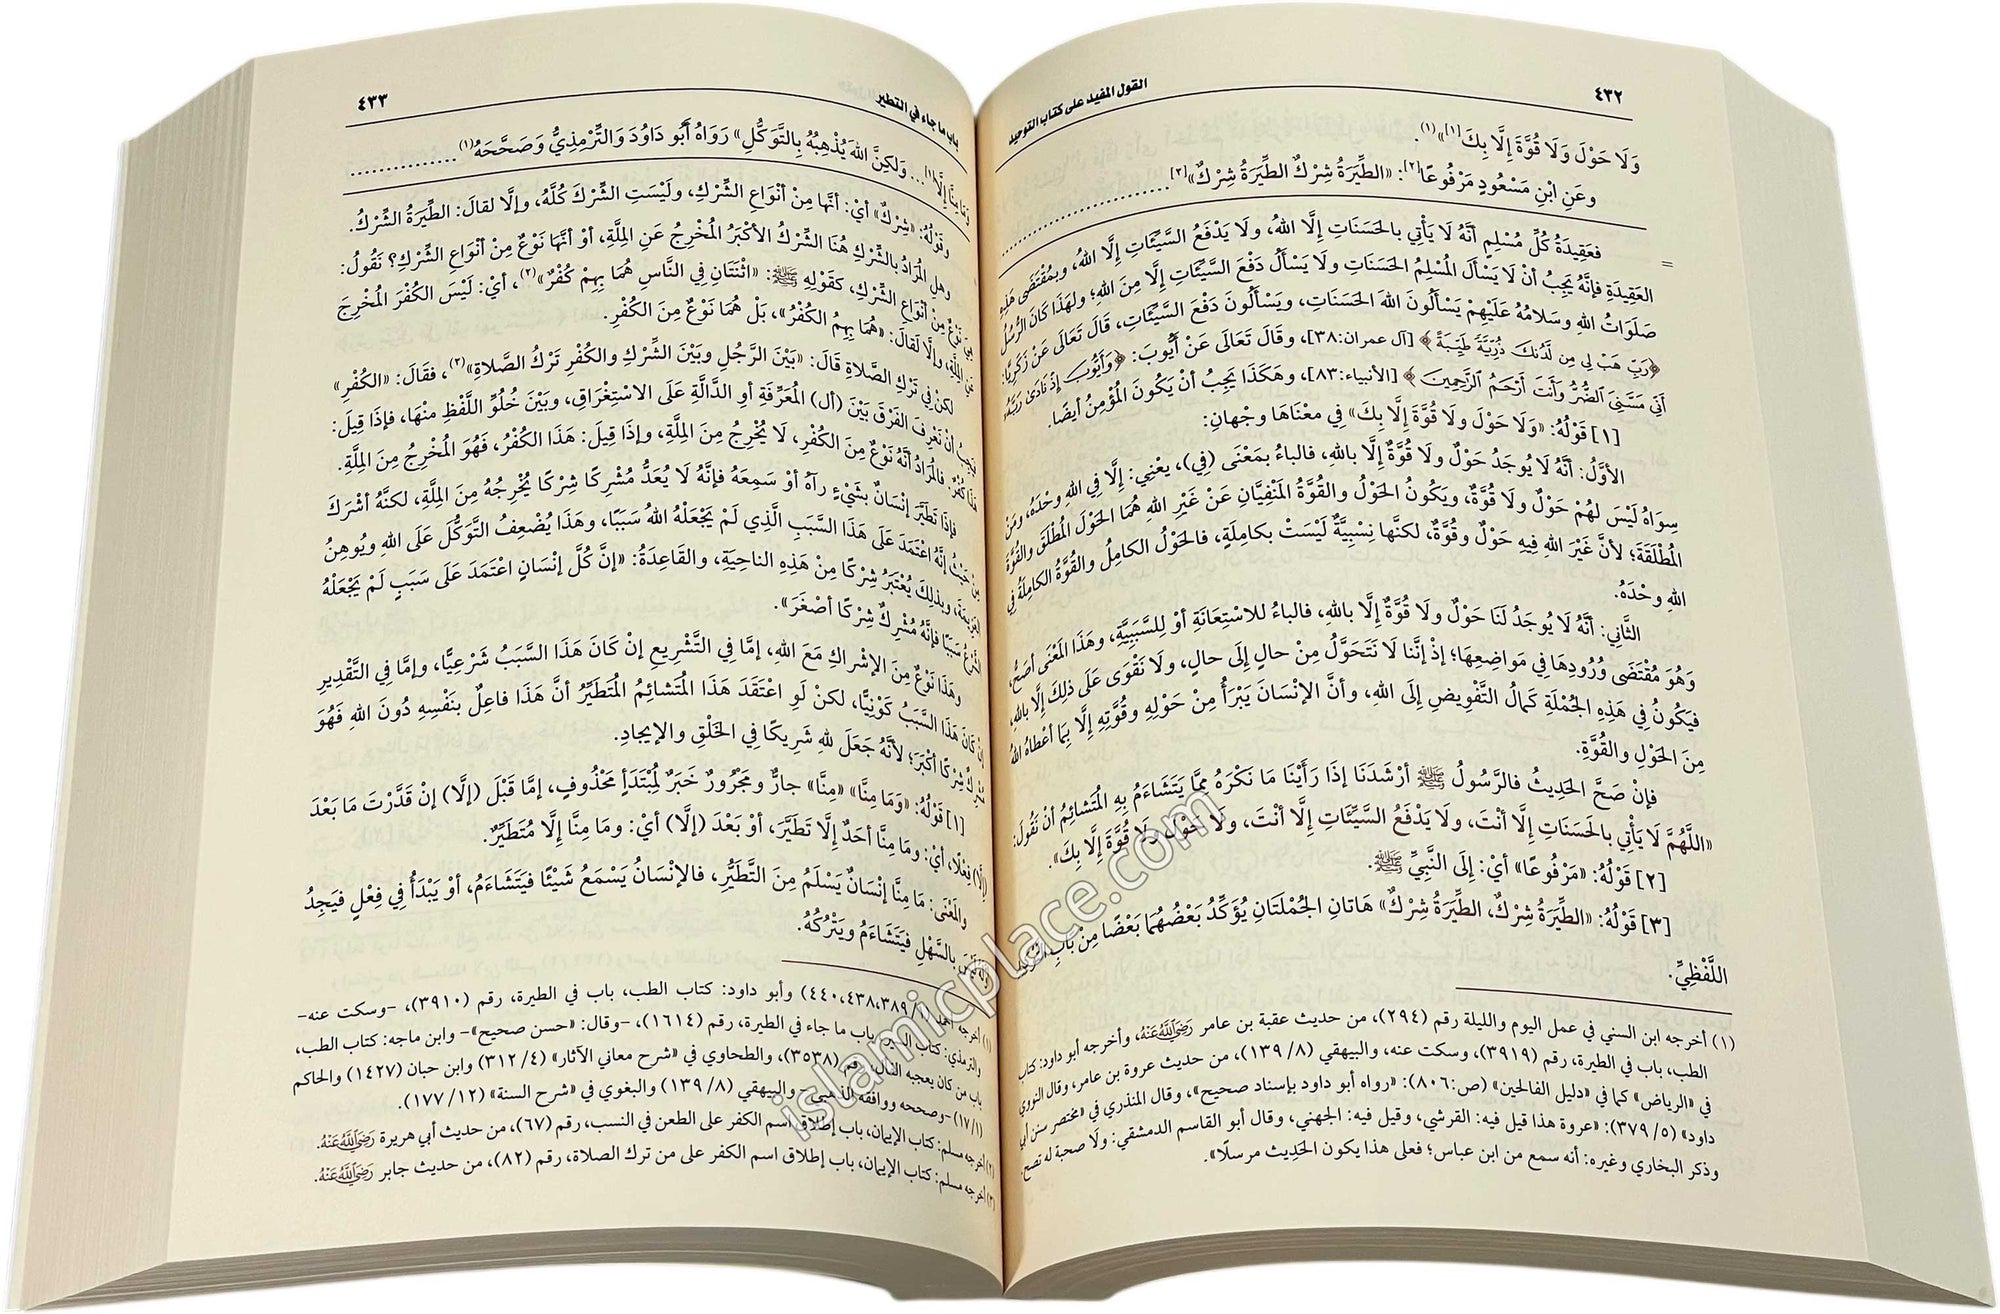 ٤٣٢
القول المفيد على كتاب التوحيد
وَلَا حَوْلَ وَلَا قُوَّةَ إِلَّا بِكَ[١]»(١).
وَعَنِ ابْنِ مَسْعُودٍ مَرْفُوعًا[٢]: «الطِّيَرَةُ شِرْكٌ الطِّيَرَةُ شِرْكٌ»[٣]
=
فعَقِيدَةُ كُلِّ مُسْلِمٍ أنَّهُ لَا يَأْتِي بالحَسَنَاتِ إِلَّا اللهُ، ولَا يَدْفَعُ السَّيِّئَاتِ إِلَّا اللهُ، وبمُقْتَضَى هَذِهِ
العَقِيدَةِ فإنَّهُ يَجِبُ أنْ لَا يَسْأَلَ المُسْلِمُ الحَسَنَاتِ ولَا يَسْأَلُ دَفْعَ السَّيِّئَاتِ إِلَّا مِنَ اللهِ؛ ولهَذَا كَانَ الرُّسُلُ
صَلَوَاتُ اللهِ وسَلامُهُ عَلَيْهِمْ يَسْأَلُونَ اللهَ الحَسَنَاتِ، ويَسْأَلُونَ دَفْعَ السَّيِّئَاتِ، قَالَ تَعَالَى عَنْ زَكَرِيَّا:
﴿رَبِّ هَبْ لِي مِن لَّدُنكَ ذُرِّيَّةً طَيِّبَةً﴾ [آل عمران:٣٨]، وقَالَ تَعَالَى عَنْ أَيُّوبَ: ﴿وَأَيُّوبَ إِذْ نَادَىٰ رَبَّهُ
أَنِّي مَسَّنِيَ الضُّرُّ وَأَنتَ أَرْحَمُ الرَّاحِمِينَ﴾ [الأنبياء:٨٣]، وهَكَذَا يَجِبُ أنْ يَكُونَ المُؤْمِنُ أيضًا.
[١] قَوْلُهُ: «وَلَا حَوْلَ وَلَا قُوَّةَ إِلَّا بِكَ» فِي مَعْنَاهَا وجْهانِ:
الأوَّلُ: أنَّهُ لَا يُوجَدُ حَوْلٌ ولَا قُوَّةٌ إِلَّا باللهِ، فالباءُ بمَعْنَى (فِي)، يعْنِي: إِلَّا فِي اللهِ وحْدَهُ، ومَنْ
سِوَاهُ لَيْسَ لهُمْ حَوْلٌ ولَا قُوَّةٌ، ويَكُونُ الحَوْلُ والقُوَّةُ المَنْفِيَّانِ عَنْ غَيْرِ اللهِ هُمَا الحَوْلَ المُطْلَقَ والقُوَّةَ
المُطْلَقَةَ؛ لأنَّ غَيْرَ اللهِ فِيهِ حَوْلٌ وقُوَّةٌ، لكنَّها نِسْبِيَّةٌ لَيْسَتْ بكامِلَةٍ، فالحَوْلُ الكامِلُ والقُوَّةُ الكامِلَةُ فِي
اللهِ وحْدَهُ.
الثَّانِي: أنَّهُ لَا يُوجَدُ لَنَا حَوْلٌ ولَا قُوَّةٌ إِلَّا باللهِ، فالباءُ للاسْتِعَانَةِ أوْ لِلسَّبَبِيَّةِ، وهَذَا المَعْنَى أصَحُّ،
وَهُوَ مُقْتَضَى وُرُودِهَا فِي مَواضِعِهَا؛ إِذْ إنَّنَا لَا نَتَحَوَّلُ مِنْ حالٍ إلَى حالٍ، ولَا نَقْوَى عَلَى ذلِكَ إِلَّا باللهِ،
فيَكُونُ فِي هَذِهِ الجُمْلَةِ كَمالُ التَّفْوِيضِ إلَى اللهِ، وأنَّ الإنْسَانَ يَبْرَأُ مِنْ حَوْلِهِ وقُوَّتِهِ إِلَّا بِمَا أعْطاهُ اللهُ
مِنَ الحَوْلِ والقُوَّةِ.
فإنْ صَحَّ الحَدِيثُ فالرَّسُولُ ﷺ أرْشَدَنَا إذَا رَأَيْنَا مَا نَكْرَهُ مِمَّا يَتَشَاءَمُ بِهِ المُتَشائِمُ أنْ نَقُولَ:
«اللَّهُمَّ لَا يَأْتِي بالحَسَنَاتِ إِلَّا أنْتَ، ولَا يَدْفَعُ السَّيِّئَاتِ إِلَّا أنْتَ، ولَا حَوْلَ ولَا قُوَّةَ إِلَّا بِكَ».
[٢] قَوْلُهُ: «مَرْفُوعًا» أيْ: إِلَى النَّبِيِّ ﷺ.
[٣] قَوْلُهُ: «الطِّيَرَةُ شِرْكٌ، الطِّيَرَةُ شِرْكٌ» هَاتَانِ الجُمْلَتَانِ يُؤَكِّدُ بَعْضُهُمَا بَعْضًا مِنْ بابِ التَّوْكِيدِ
اللَّفْظِيِّ.
(١) أخرجه ابن السني في عمل اليوم والليلة رقم (٢٩٤)، من حديث عقبة بن عامر رَضِيَ اللهُ عَنْهُ، وأخرجه أبو داود: كتاب
الطب، باب في الطيرة، رقم (٣٩١٩)، وسكت عنه، والبيهقي (٨/ ١٣٩)، من حديث عروة بن عامر، وقال النووي
في «الرياض» كما في «دليل الفالحين» (ص:٨٠٦): «رواه أبو داود بإسناد صحيح»، وقال المنذري في «مختصر سنن أبي
داود» (٥/ ٣٧٩): «عروة هذا قيل فيه: القرشي، وقيل فيه: الجهني، وقال أبو القاسم الدمشقي: ولا صحبة له تصح.
وذكر البخاري وغيره: أنه سمع من ابن عباس؛ فعلى هذا يكون الحَدِيث مرسلًا».
باب ما جاء في التطير
٤٣٣
وَمَا مِنَّا إِلَّا[١]... وَلَكِنَّ اللهَ يُذْهِبُهُ بِالتَّوَكُّلِ» رَوَاهُ أَبُو دَاوُدَ وَالتِّرْمِذِيُّ وَصَحَّحَهُ(١)
وقَوْلُهُ: «شِرْكٌ» أيْ: أنَّها مِنْ أنْوَاعِ الشِّرْكِ، ولَيْسَتِ الشِّرْكَ كُلَّهُ، وإلَّا لقالَ: الطِّيَرَةُ الشِّرْكُ.
وهلِ المُرَادُ بالشِّرْكِ هُنَا الشِّرْكُ الأكْبَرُ المُخْرِجُ عَنِ المِلَّةِ، أوْ أنَّها نَوْعٌ مِنْ أنْوَاعِ الشِّرْكِ؟ نَقُولُ:
هِيَ نَوْعٌ مِنْ أنْوَاعِ الشِّرْكِ، كقَوْلِهِ ﷺ: «اثْنَتَانِ فِي النَّاسِ هُمَا بِهِمْ كُفْرٌ»(٢)، أيْ: لَيْسَ الكُفْرَ المُخْرِجَ
عَنِ المِلَّةِ، وإلَّا لَقالَ: «هُمَا بِهِمُ الكُفْرُ»، بَلْ هُمَا نَوْعٌ مِنَ الكُفْرِ.
لكنْ فِي تَرْكِ الصَّلاةِ قَالَ: «بَيْنَ الرَّجُلِ وبَيْنَ الشِّرْكِ والكُفْرِ تَرْكُ الصَّلاةِ»(٣)، فقَالَ: «الكُفْرِ»
فيَجِبُ أنْ نَعْرِفَ الفَرْقَ بَيْنَ (أل) المُعَرِّفَةِ أوِ الدَّالَّةِ عَلَى الاسْتِغْراقِ، وبَيْنَ خُلُوِّ اللَّفْظِ منْهَا، فإذَا قِيلَ:
هَذَا كُفْرٌ. فالمُرَادُ أنَّهُ نَوْعٌ مِنَ الكُفْرِ، لَا يُخْرِجُ مِنَ المِلَّةِ، وإذَا قِيلَ: هَذَا الكُفْرُ، فَهُوَ المُخْرِجُ مِنَ المِلَّةِ.
فإذَا تَطَيَّرَ إنْسَانٌ بشَيْءٍ رَآهُ أوْ سَمِعَهُ فإنَّهُ لَا يُعَدُّ مُشْرِكًا شِرْكًا يُخْرِجُهُ مِنَ المِلَّةِ، لكنَّهُ أشْرَكَ
مِنْ حَيْثُ إنَّهُ اعْتَمَدَ عَلَى هَذَا السَّبَبِ الَّذِي لَمْ يَجْعَلْهُ اللهُ سَبَبًا، وهَذَا يُضْعِفُ التَّوَكُّلَ عَلَى اللهِ ويُوهِنُ
العَزِيمَةَ، وبذلِكَ يُعْتَبَرُ شِرْكًا مِنْ هَذِهِ الناحِيَةِ، والقَاعِدَةُ: «إنَّ كُلَّ إنْسَانٍ اعْتَمَدَ عَلَى سَبَبٍ لَمْ يَجْعَلْهُ
الشَّرْعُ سَبَبًا فإنَّهُ مُشْرِكٌ شِرْكًا أصْغَرَ».
وهَذَا نَوْعٌ مِنَ الإشْراكِ مَعَ اللهِ، إمَّا فِي التَّشْرِيعِ إنْ كَانَ هَذَا السَّبَبُ شَرْعِيًّا، وإمَّا فِي التَّقْدِيرِ
إنْ كَانَ هَذَا السَّبَبُ كَوْنِيًّا، لكنْ لَوِ اعْتَقَدَ هَذَا المُتَشائِمُ المُتَطَيِّرُ أنَّ هَذَا فاعِلٌ بنَفْسِهِ دُونَ اللهِ فَهُوَ
مُشْرِكٌ شِرْكًا أكْبَرَ؛ لأنَّهُ جَعَلَ للهِ شَرِيكًا فِي الخَلْقِ والإيجادِ.
[١] قَوْلُهُ: «وَمَا مِنَّا» «مِنَّا» جارٌّ ومَجْرُورٌ خَبَرٌ لمُبْتَدَأٍ مَحْذُوفٍ، إمَّا قَبْلَ (إلَّا) إنْ قَدَّرْتَ مَا بَعْدَ
(إلَّا) فِعْلًا، أيْ: ومَا مِنَّا أحَدٌ إِلَّا تَطَيَّرَ، أوْ بَعْدَ (إلَّا) أيْ: ومَا مِنَّا إلَّا مُتَطَيِّرٌ.
والمَعْنَى: مَا مِنَّا إنْسَانٌ يَسْلَمُ مِنَ التَّطَيُّرِ، فالإنْسَانُ يَسْمَعُ شَيْئًا فيَتَشَاءَمُ، أوْ يَبْدَأُ فِي فِعْلٍ فيَجِدُ
بالسَّهْلِ فيَتَشَاءَمُ ويَتْرُكُهُ.
(١) أخرجه أحمد (١/ ٣٨٩،٤٣٨،٤٤٠) وأبو داود: كتاب الطب، باب في الطيرة، رقم (٣٩١٠)، -وسكت عنه-
والترمذي: كتاب السير، باب ما جاء في الطيرة، رقم (١٦١٤)، -وقال: «حسن صحيح»- وابن ماجه: كتاب الطب،
باب من كان يعجبه الفأل، رقم (٣٥٣٨)، والطحاوي في «شرح معاني الآثار» (٤/ ٣١٢) وابن حبان (١٤٢٧) والحاكم
(١/ ١٧) -وصححه ووافقه الذهبي- والبيهقي (٨/ ١٣٩) والبغوي في «شرح السنة» (١٢/ ١٧٧).
(٢) أخرجه مسلم: كتاب الإيمان، باب إطلاق اسم الكفر على الطعن في النسب، رقم (٦٧)، من حديث أبي هريرة رَضِيَ اللهُ عَنْهُ.
(٣) أخرجه مسلم: كتاب الإيمان، باب إطلاق اسم الكفر على من ترك الصلاة، رقم (٨٢)، من حديث جابر رَضِيَ اللهُ عَنْهُ.
islamicplace.com